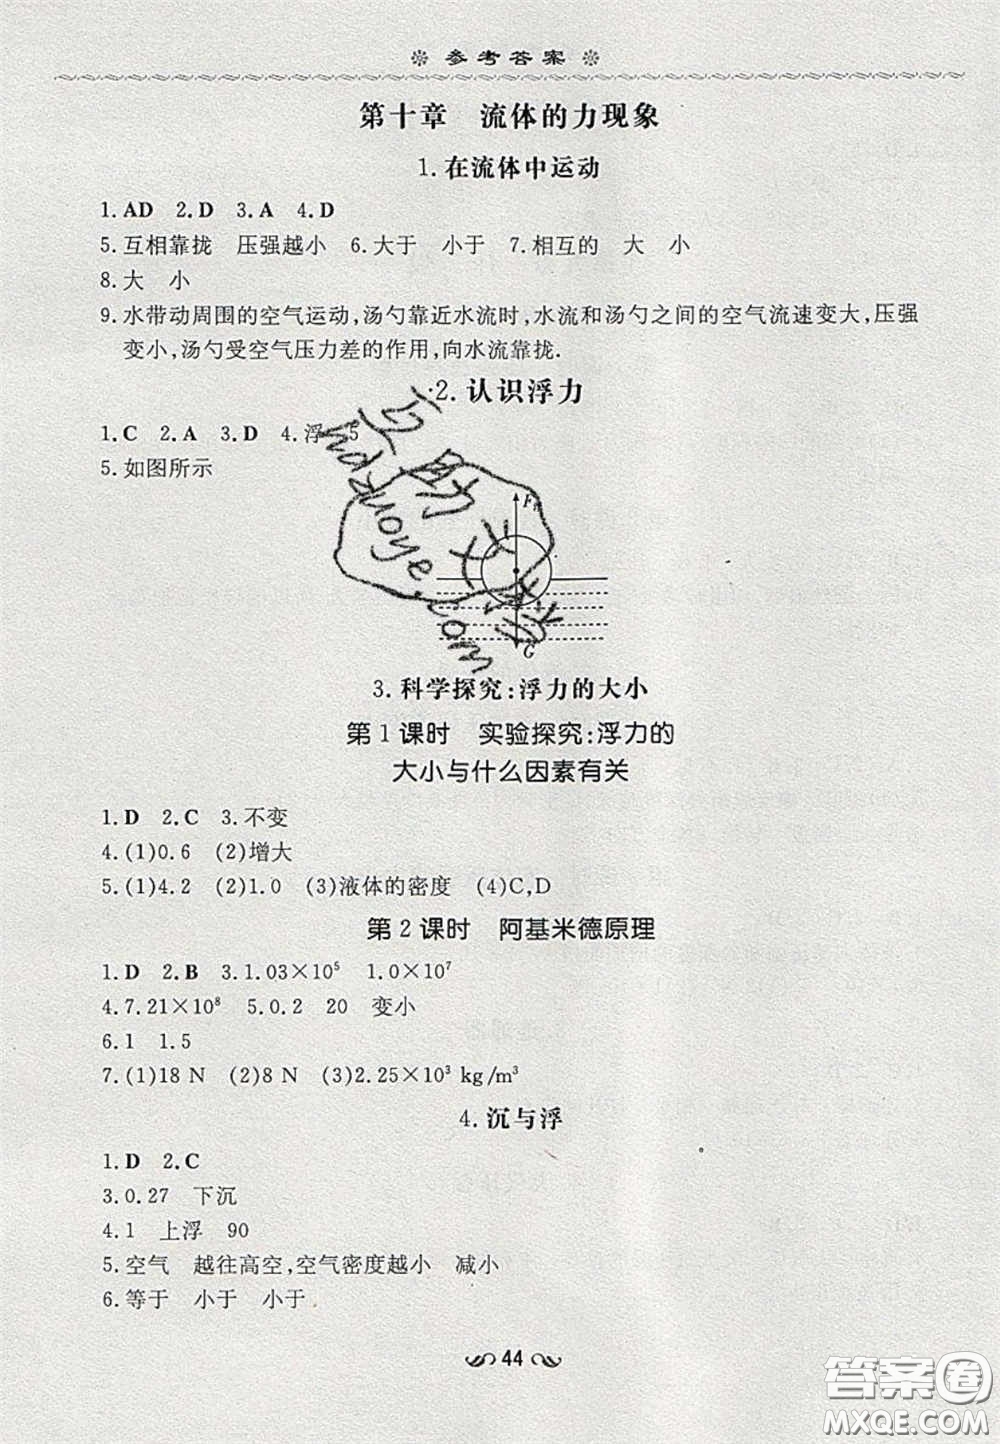 参考答案
第十章 流体的力现象
1.在流体中运动
1.AD 2.D 3.A 4.D
5.互相靠拢 压强越小 6.大于 小于 7.相互的 大 小
8.大 小
9.水带动周围的空气运动,汤勺靠近水流时,水流和汤勺之间的空气流速变大,压强
变小,汤勺受空气压力差的作用,向水流靠拢.
2.认识浮力
1.C 2.A 3.D 4.浮 5
5.如图所示
G
3.科学探究:浮力的大小
第1课时 实验探究:浮力的
大小与什么因素有关
1.D 2.C 3.不变
4.(1)0.6 (2)增大
5.(1)4.2 (2)1.0 (3)液体的密度 (4)C,D
第2课时 阿基米德原理
1.D 2.B 3.1.03×10⁵ 1.0×10⁷
4.7.21×10⁸ 5.0.2 20 变小
6.1 1.5
7.(1)18 N (2)8 N (3)2.25×10³ kg/m³
4.沉与浮
1.D 2.C
3.0.27 下沉
4.1 上浮 90
5.空气 越往高空,空气密度越小 减小
6.等于 小于 小于
44
答案圈
MXQE.COM